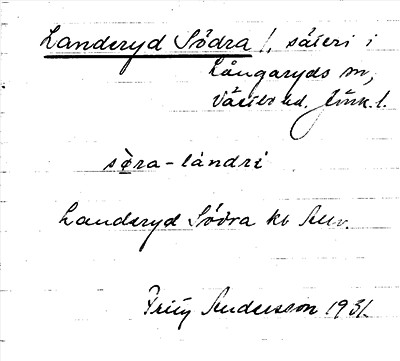 Landeryd Södra /, säteri i
Långaryds sn,
Västbo hd. Jönk. l.
sø̀ra-lándri
Landeryd Södra kb
Andersson 1931.